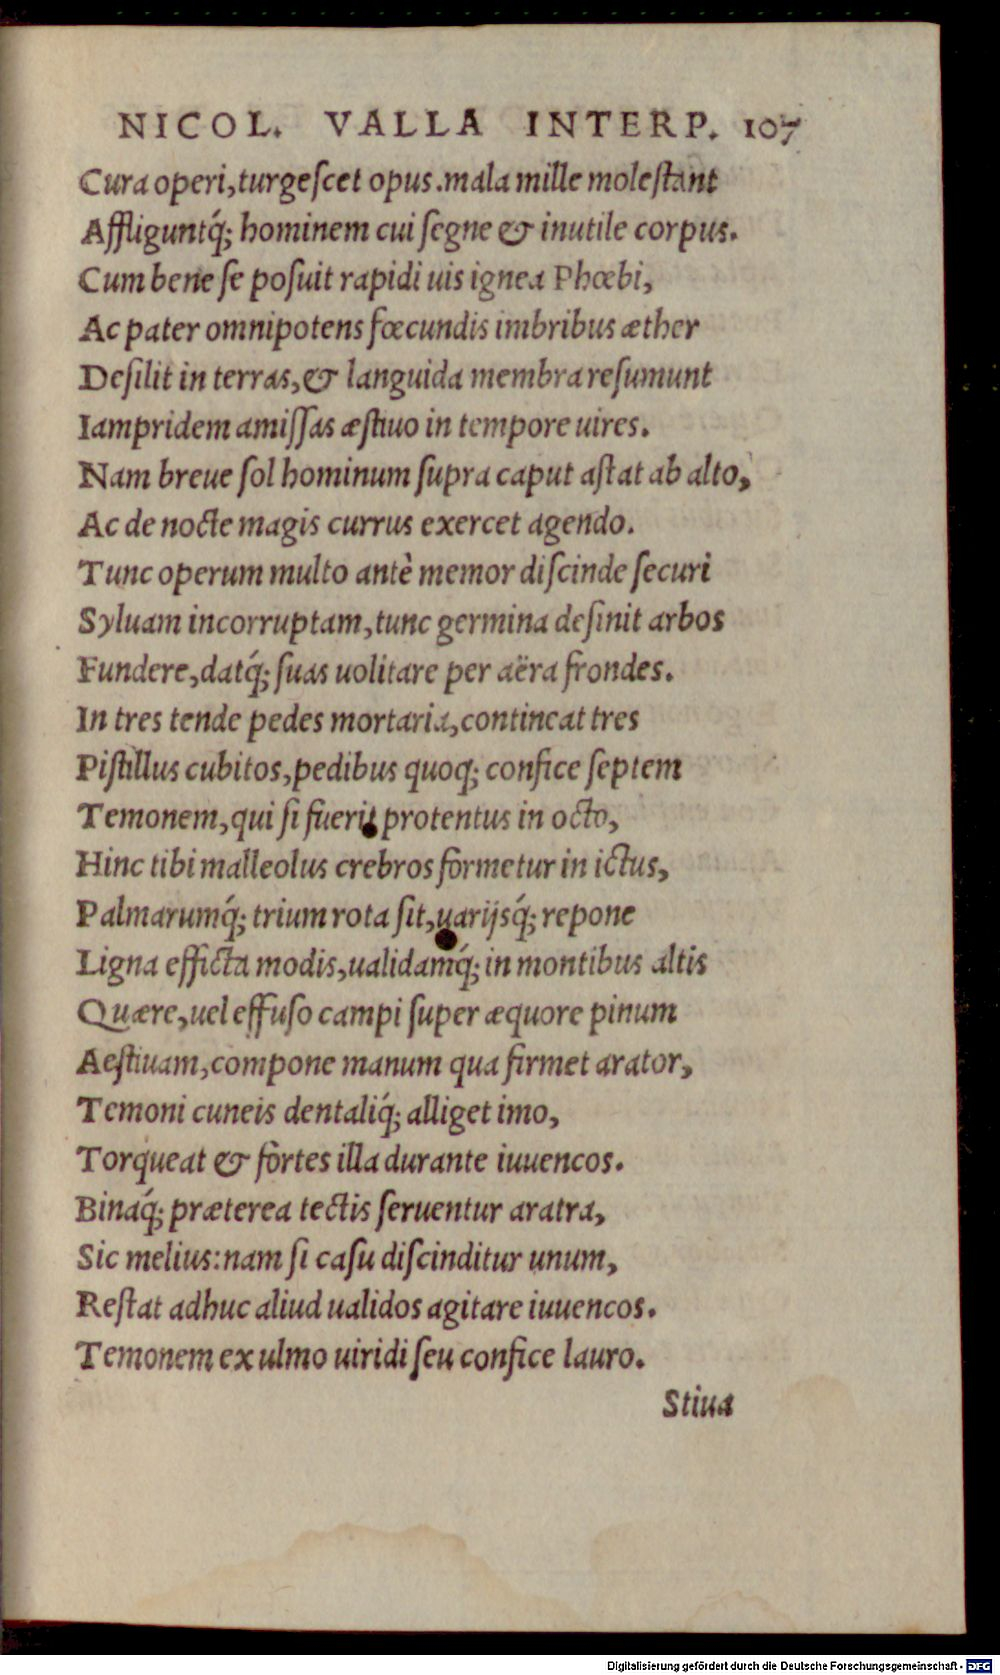 NICOL. VALLA INTERP. 107
Cura operi, turgeſcet opus. mala mille moleſtant
Affliguntq́; hominem cui ſegne & inutile corpus.
Cum bene ſe poſuit rapidi uis ignea Phœbi,
Ac pater omnipotens fœcundis imbribus æther
Deſilit in terras, & languida membra reſumunt
Iampridem amiſſas æſtiuo in tempore uires.
Nam breue ſol hominum ſupra caput aſtat ab alto,
Ac de nocte magis currus exercet agendo.
Tunc operum multo antè memor diſcinde ſecuri
Syluam incorruptam, tunc germina deſinit arbos
Fundere, datq́; ſuas uolitare per aëra frondes.
In tres tende pedes mortaria, contineat tres
Piſtillus cubitos, pedibus quoq; confice ſeptem
Temonem, qui ſi fuerit protentus in octo,
Hinc tibi malleolus crebros formetur in ictus,
Palmarumq́; trium rota ſit, uarijsq́; repone
Ligna efficta modis, ualidamq́; in montibus altis
Quære, uel effuſo campi ſuper æquore pinum
Aeſtiuam, compone manum qua firmet arator,
Temoni cuneis dentaliq́; alliget imo,
Torqueat & fortes illa durante iuuencos.
Binaq́; præterea tectis ſeruentur aratra,
Sic melius: nam ſi caſu diſcinditur unum,
Reſtat adhuc aliud ualidos agitare iuuencos.
Temonem ex ulmo uiridi ſeu confice lauro.
Stiua
Digitalisierung gefördert durch die Deutsche Forschungsgemeinschaft - DFG